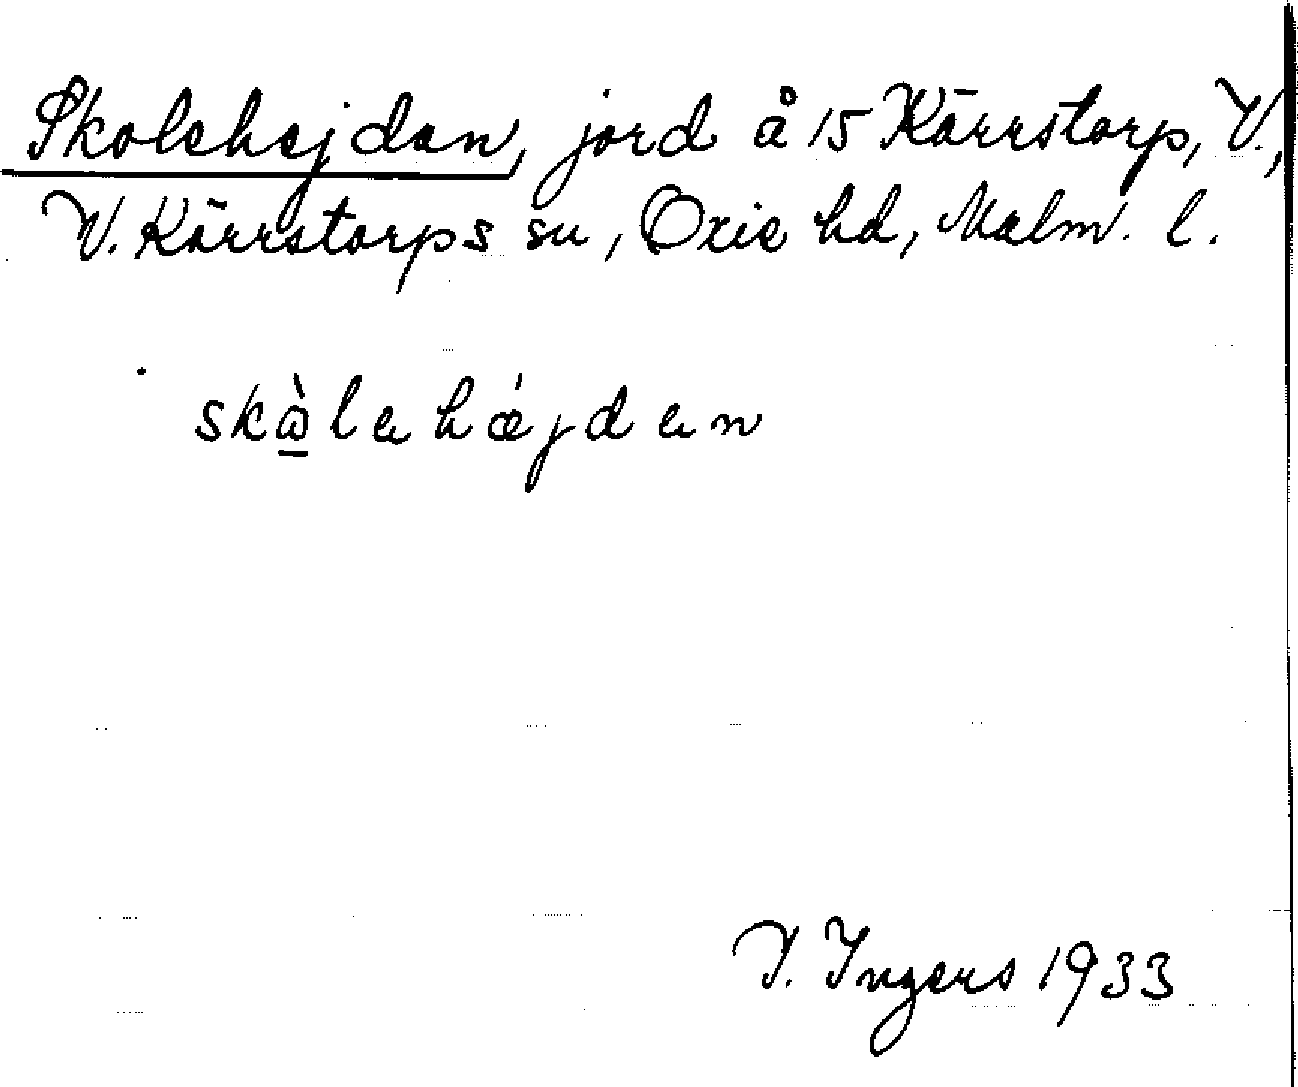 Skolehejdan, jord å 15 Kärrstorp, V.,
V. Kärrstorps sn, Oxie hd, Malm. l.
skὼlehǽjden
I. Ingers 1933